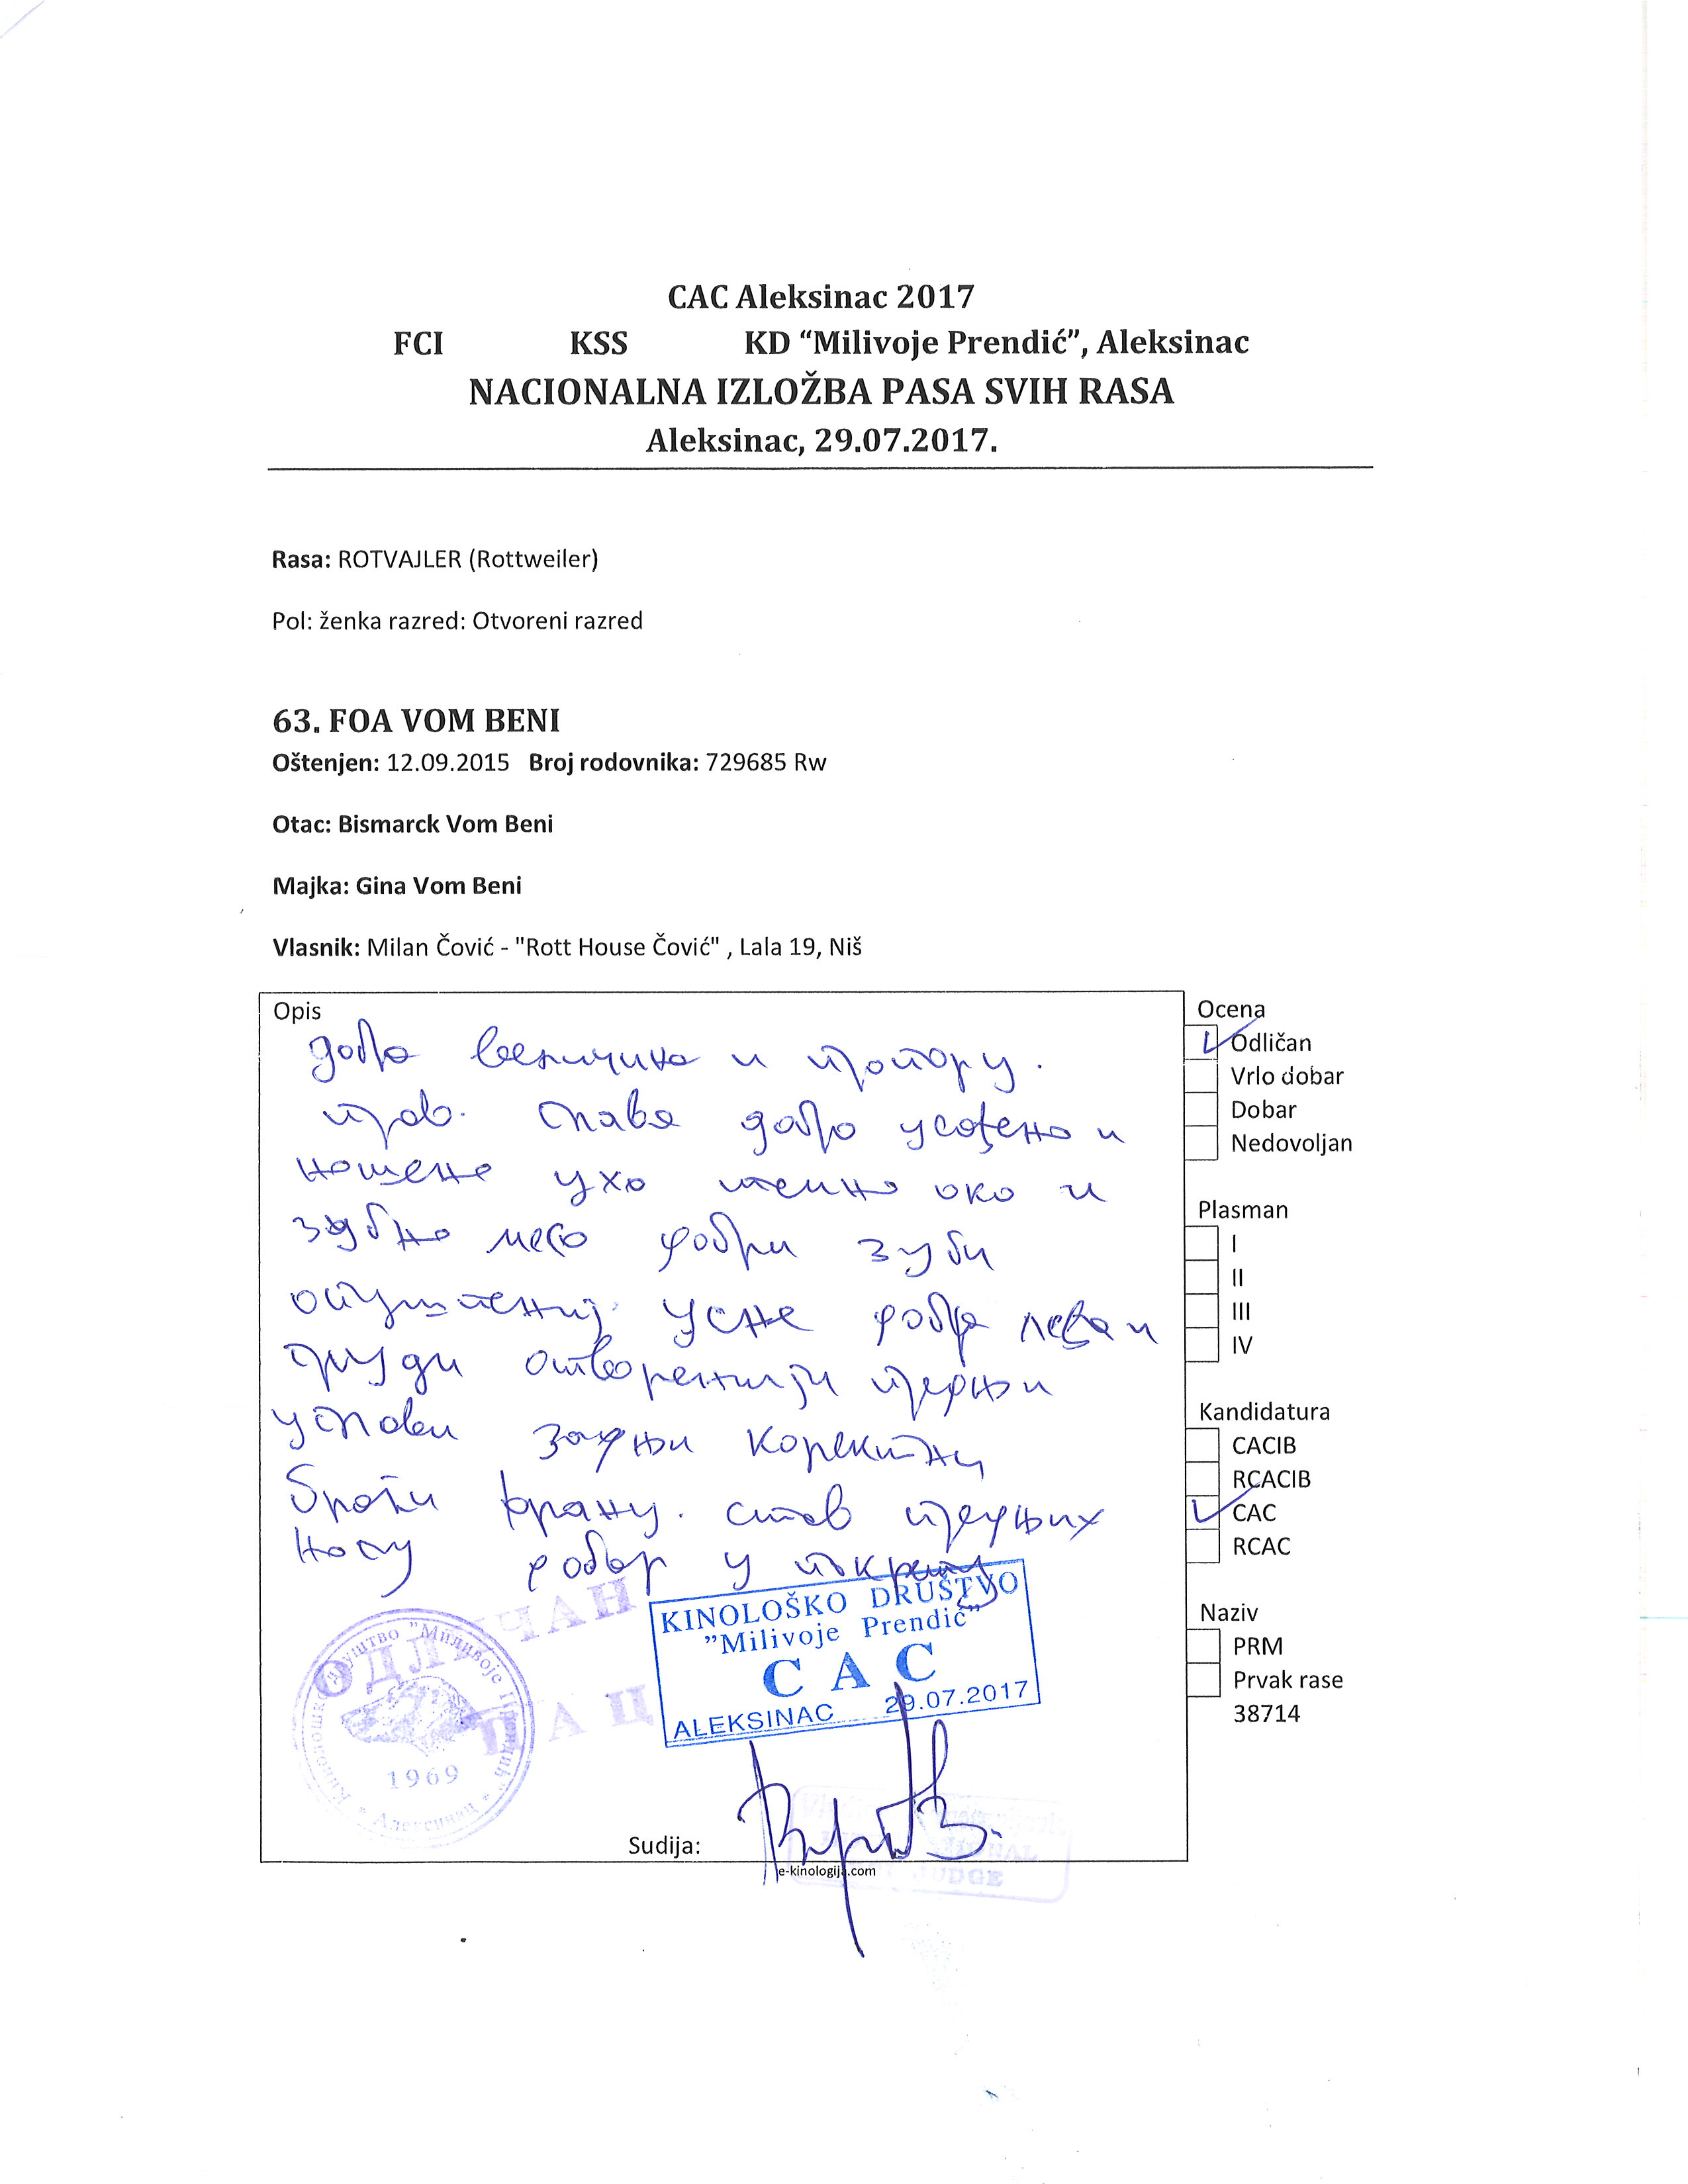 CAC Aleksinac 2017
FCI KSS KD “Milivoje Prendić”, Aleksinac
NACIONALNA IZLOŽBA PASA SVIH RASA
Aleksinac, 29.07.2017.
Rasa: ROTVAJLER (Rottweiler)
Pol: ženka razred: Otvoreni razred
63. FOA VOM BENI
Oštenjen: 12.09.2015 Broj rodovnika: 729685 Rw
Otac: Bismarck Vom Beni
Majka: Gina Vom Beni
Vlasnik: Milan Čović - "Rott House Čović" , Lala 19, Niš
Opis
добра величина и
глава добро усађено и
ношено ухо тамно око и
зубно месо добри зуби
усне добра леђа и
груди отворенији предњи
углови задњи коректни
став предњих
ногу добар у покрету
КИНОЛОШКО ДРУШТВО "Миливоје Прендић"
1969
Алексинац
ОДЛИЧАН
ЦАЦ
KINOLOŠKO DRUŠTVO
"Milivoje Prendić"
CAC
ALEKSINAC 29.07.2017
Sudija:
JUDGE
e-kinologija.com
Ocena
Odličan
Vrlo dobar
Dobar
Nedovoljan
Plasman
I
II
III
IV
Kandidatura
CACIB
RCACIB
CAC
RCAC
Naziv
PRM
Prvak rase
38714